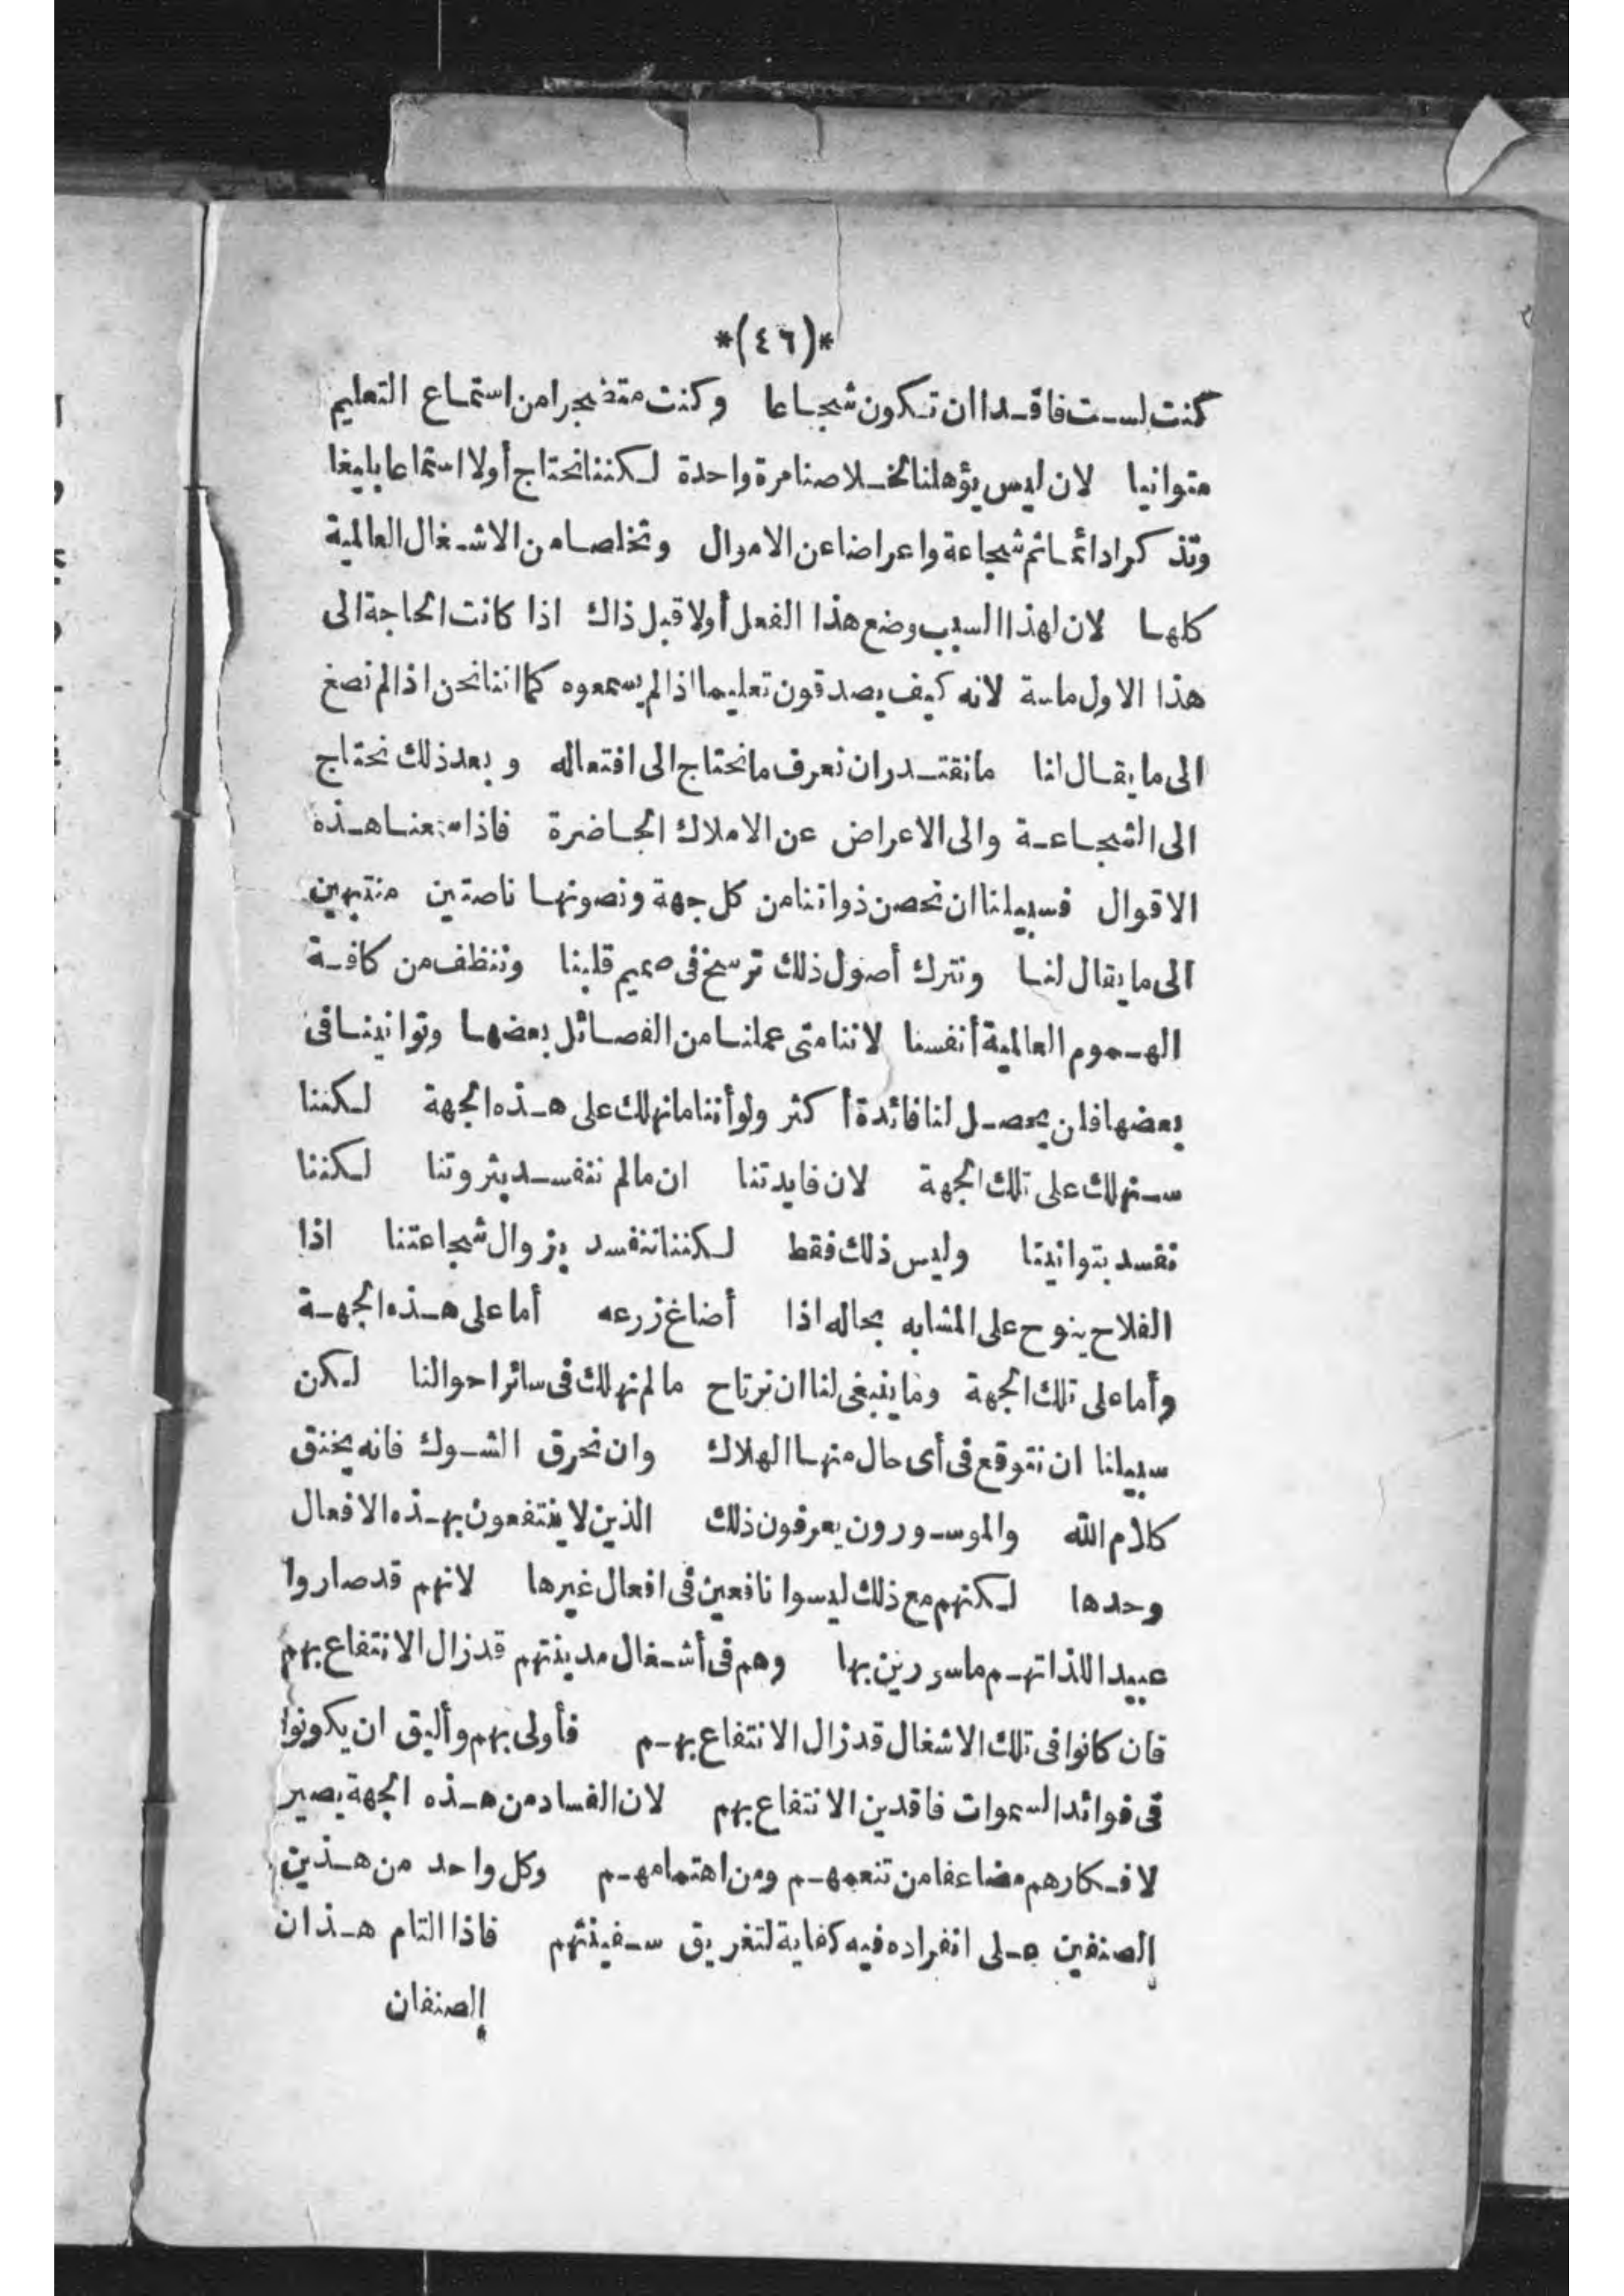 *(٤٦)*
كنت لست فاقدا ان تكون شجاعا وكنت متضجرا من استماع التعليم
متوانيا لان ليس يؤهلنا لخلاصنا مرة واحدة لكننا نحتاج أولا استماعا بليغا
وتذكرا دائما ثم شجاعة واعراضا عن الاموال وتخلصا من الاشغال العالمية
كلها لان لهذا السبب وضع هذا الفعل أولا قبل ذاك اذا كانت الحاجة الى
هذا الاول ماسة لانه كيف يصدقون تعليما اذا لم يسمعوه كما اننا نحن اذا لم نصغ
الى ما يقال لنا ما نقتدر ان نعرف ما نحتاج الى افتعاله وبعد ذلك نحتاج
الى الشجاعة والى الاعراض عن الاملاك الحاضرة فاذا سمعنا هذه
الاقوال فسبيلنا ان نحصن ذواتنا من كل جهة ونصونها ناصتين منتبهين
الى ما يقال لنا ونترك أصول ذلك ترسخ فى صميم قلبنا وننظف من كافة
الهموم العالمية أنفسنا لاننا متى عملنا من الفصائل بعضها وتوانينا فى
بعضها فلن يحصل لنا فائدة أكثر ولو أننا ما نهلك على هذه الجهة لكننا
سنهلك على تلك الجهة لان فايدتنا ان ما لم ننفسد بثروتنا لكننا
نفسد بتوانينا وليس ذلك فقط لكننا ننفسد بزوال شجاعتنا اذا
الفلاح ينوح على المشابه بحاله اذا أضاغ زرعه أما على هذه الجهة
وأما على تلك الجهة وما ينبغى لنا ان نرتاح ما لم نهلك فى سائر احوالنا لكن
سبيلنا ان نتوقع فى أى حال منها الهلاك وان نحرق الشوك فانه يخنق
كلام الله والموسورون يعرفون ذلك الذين لا ينتفعون بهذه الافعال
وحدها لكنهم مع ذلك ليسوا نافعين فى افعال غيرها لانهم قد صاروا
عبيدا للذاتهم ماسورين بها وهم فى أشغال مدينتهم قد زال الانتفاع بهم
فان كانوا فى تلك الاشغال قد زال الانتفاع بهم فأولى بهم وأليق ان يكونوا
فى فوائد السموات فاقدين الانتفاع بهم لان الفساد من هذه الجهة يصير
لافكارهم مضاعفا من تنعمهم ومن اهتمامهم وكل واحد من هذين
الصنفين على انفراده فيه كفاية لتغريق سفينتهم فاذا التام هذان
الصنفان